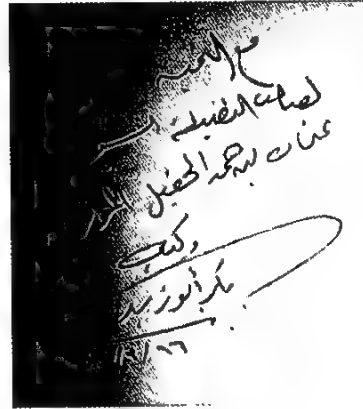 مع التحية
لصاحب الفضيلة الشيخ
عثمان بن حمد الحقيل
وكتب
بكر أبو زيد